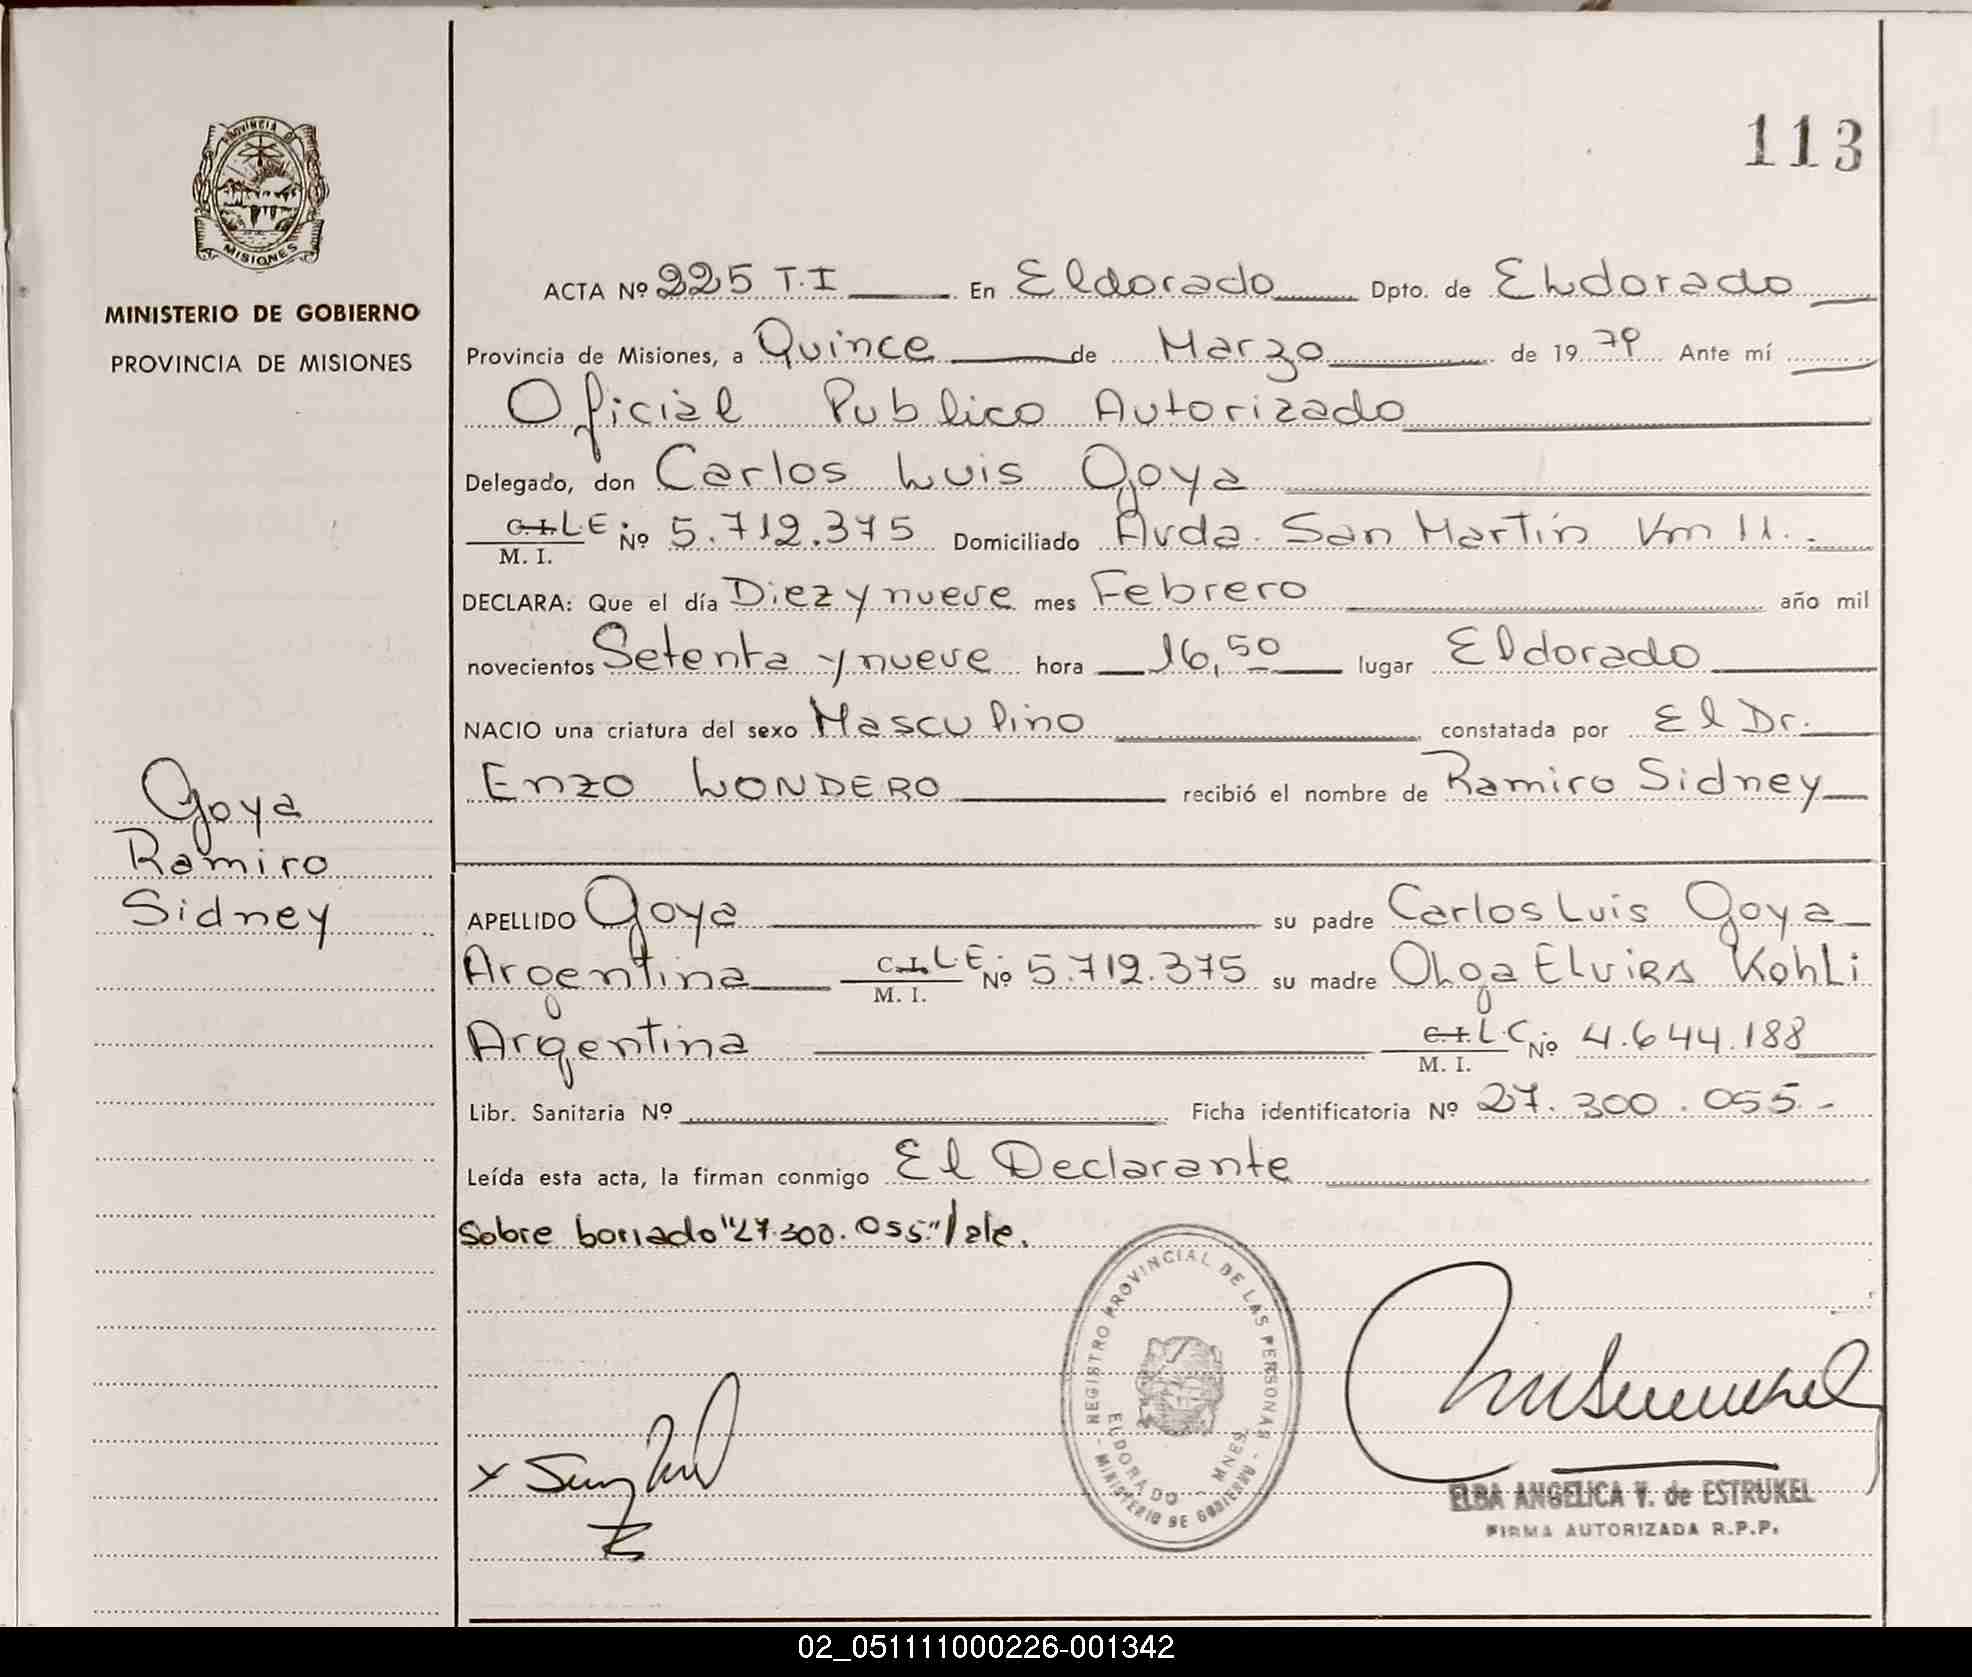 113
PROVINCIA DE
MISIONES
MINISTERIO DE GOBIERNO
PROVINCIA DE MISIONES
ACTA Nº 225 T.I En Eldorado Dpto. de Eldorado
Provincia de Misiones, a Quince de Marzo de 19 79 Ante mí
Oficial Publico Autorizado
Delegado, don Carlos Luis Goya
C.I. L.E. Nº 5.712.375 Domiciliado Avda. San Martín Km 11.-
M. I.
DECLARA: Que el día Diez y nueve mes Febrero año mil
novecientos Setenta y nueve hora 16,50 lugar Eldorado
NACIO una criatura del sexo Masculino constatada por El Dr.
Enzo LONDERO recibió el nombre de Ramiro Sidney
Goya
Ramiro
Sidney
APELLIDO Goya su padre Carlos Luis Goya
Argentina C.I. L.E. Nº 5.712.375 su madre Olga Elvira Kohli
M. I.
Argentina C.I. L.C. Nº 4.644.188
M. I.
Libr. Sanitaria Nº Ficha identificatoria Nº 27.300.055.-
Leída esta acta, la firman conmigo El Declarante
Sobre borrado "27.300.055."/ale.
REGISTRO PROVINCIAL DE LAS PERSONAS
ELDORADO - MNES.
- MINISTERIO DE GOBIERNO -
ELBA ANGELICA V. de ESTRUKEL
FIRMA AUTORIZADA R.P.P.
02_051111000226-001342